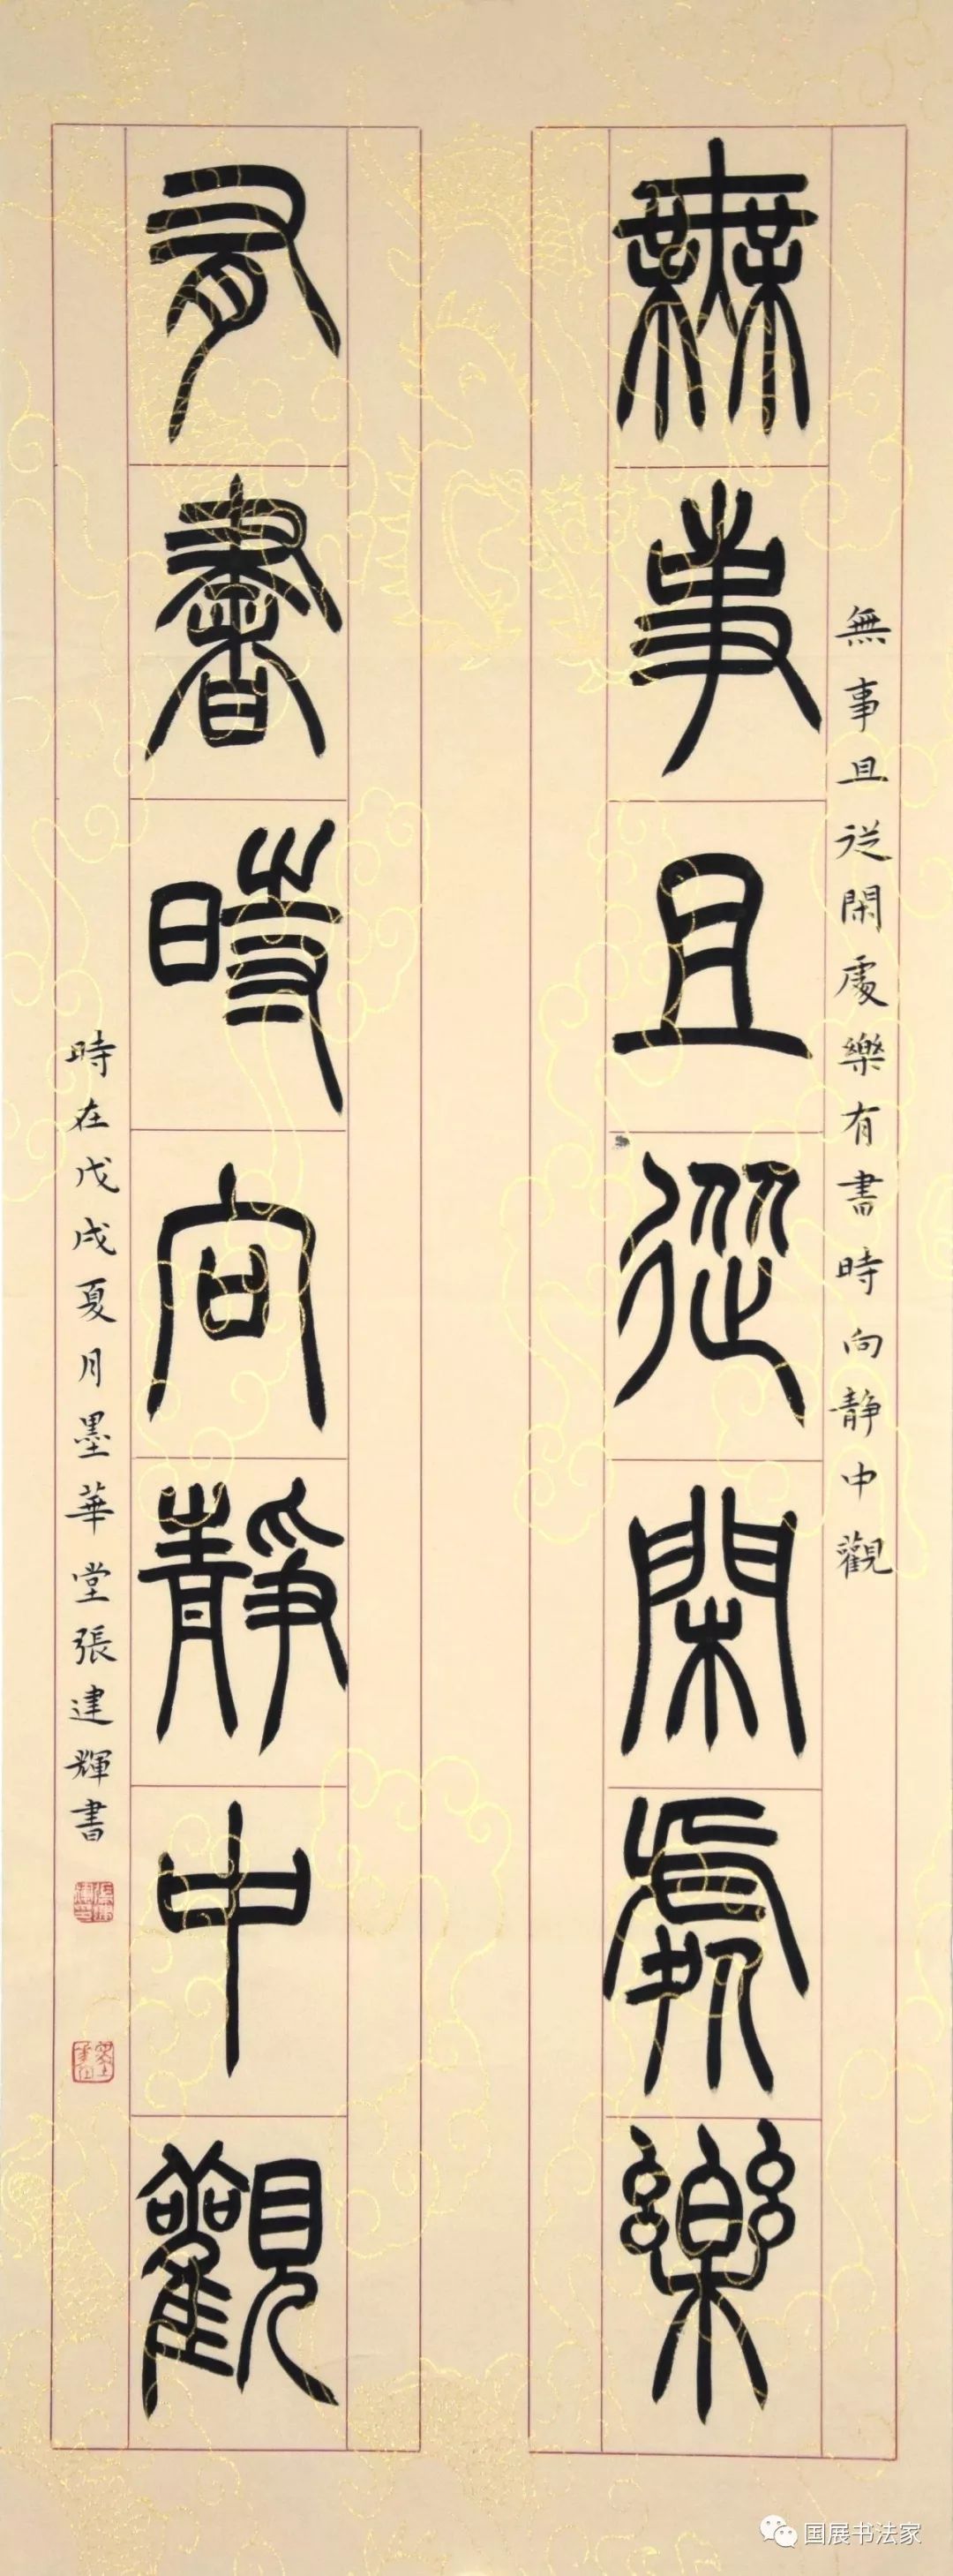 無事且從閑處樂
無事且從閑處樂有書時向静中觀
有書時向静中觀
時在戊戌夏月墨華堂張建輝書
国展书法家